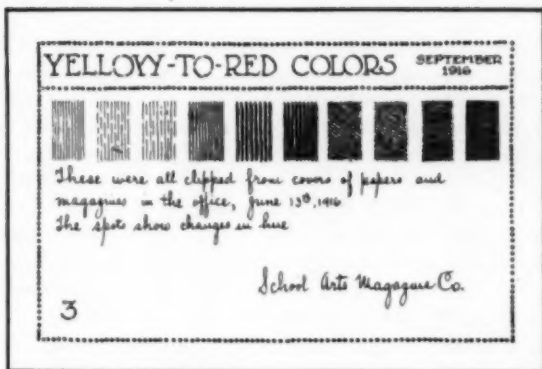 YELLOW-TO-RED COLORS SEPTEMBER 1916
These were all clipped from covers of papers and
magazines in the office, June 13th, 1916
The spots show changes in hue
School Arts Magazine Co.
3